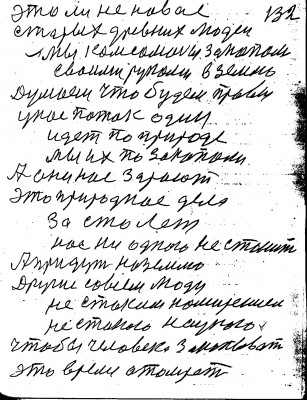 это ли не новое 132
старых древных людеи
мы комсомолу закопали
своими руками в землю
Думаем что будем правы
у нас поток один
идет по природе
мы их по закопали
А они нас зароют
это природное дело
За сто лет
нас ни одного не станит
А придут на землю
Другие совсем люду
не с таким
не с такого
чтобы человека
это время отомрет